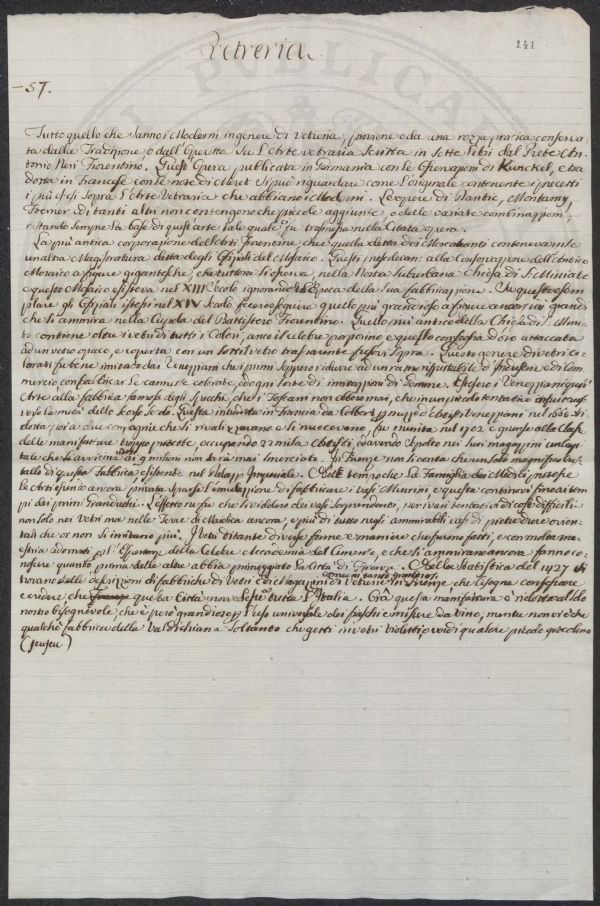 141
Vetreria
- 57.
Tutto quello che sanno i Moderni in genere di Vetreria, proviene o da una rozza pratica conserva-
ta dalla Tradizione o dall'Operetta su l'Arte vetraria scritta in sette libri dal Prete An-
tonio Neri Fiorentino. Quest'Opera publicata in Germania con le osservazioni di Kunckel, e tra
dotta in francese con le note di Merret si può riguardare come l'originale contenente i precetti
i più estesi sopra l'Arte Vetraria che abbiano i Moderni. Le opere di Dantic, Montamy,
e di tanti altri non contengono che piccole aggiunte, o delle variate combinazioni,
restando sempre la base di quest'arte tale quale fu trasfusa nella Citata opera.
La più antica corporazione dell'Arti fiorentine che è quella detta dei Mercatanti conteneva in se
un'altra Magistratura ditta degli Ofiziali del Mosaico. Questi presedevan alla Conservazione dell'antico
Mosaico a figure gigantesche, che tuttora si osserva nella Nostra Suburbana Chiesa di S. Miniato
e questo Mosaico esisteva nel XIII secolo ignorandosi l'Epoca della sua fabbricazione. Su questo esem
plare gli Ofiziali istessi nel XIV secolo fecero eseguire quello più grandioso a figure ancor più grandi
che si ammira nella Cupola del Battistero Fiorentino. Quello più antico della Chiesa di S. Minia
contiene oltre i vetri di tutti i Colori, anco il celebre porporino e quello con foglia d'oro attaccata
ad un vetro opaco, e coperta con un sottil vetro trasparente fusovi sopra. Questo genere di vetri co-
lorati fu bene imitato dai Veneziani che i primi seppero ridurre ad un ramo rispettabile d'industria e di Com
mercio con fabbricar le cannette colorate, ed ogni sorte di imitazioni di Gemme. Estesero i Veneziani quest'
Arte alla fabbrica famosa degli Specchi, che i Toscani non ebbero mai, che in un piccolo tentativo infruttuoso
verso la metà dello scorso secolo. Questa introdotta in Francia da Colbert per mezzo di Artisti Veneziani nel 1665 ri
dotta poi a due compagnie che si rivalizzavano e si nuocevano, fu riunita nel 1702 e quindi alla classe
delle manifatture troppo protette, occupando 22 mila Artisti, ed avendo depositi nei suoi magazzini un capi-
tale che si avvicina ai 9 milioni non sarà mai smerciato. In Firenze non si conta che un solo magnifico
di questa fabbrica esistente nel Palazzo Imperiale. Nel tempo che la famiglia dei Medici protesse
le Arti essendo ancora privata sparse l'emulazione di fabbricare i vasi Murrini e questa continovò fino ai tem
pi dei primi Granduchi. L'effetto ne fu che si videro dei vasi sorprendenti, per i vari tentativi di cose difficili
non solo nei Vetri ma nelle Terre di Maiolica ancora, e più di tutto negli ammirabili vasi di pietre dure orien
tali che or non si imitano più. I vetri di tante diverse forme e maniere che furono fatti, e con molta ma-
estria adornati per l'Esperienze della Celebre Accademia del Cimento, e che si ammirano ancora fanno co-
noscere quanto prima delle altre abbia primeggiato la Città di Firenze. Nella Statistica del 1427 si
trovano delle descrizioni di fabbriche di Vetri e di magazzini di Vetrerie tanto grandiosi in Firenze che bisogna confessare
e credere che questa Città ne servisse tutta l'Italia. Ora questa manifattura è ridotta al solo
nostro bisognevole, che è però grandioso per l'uso universale dei fiaschi e misure da vino, mentre non vi è che
qualche fabbrica della Valdichiana soltanto che getti in vetri violetti, o verdi qualche piccolo giocolino
(joujou)